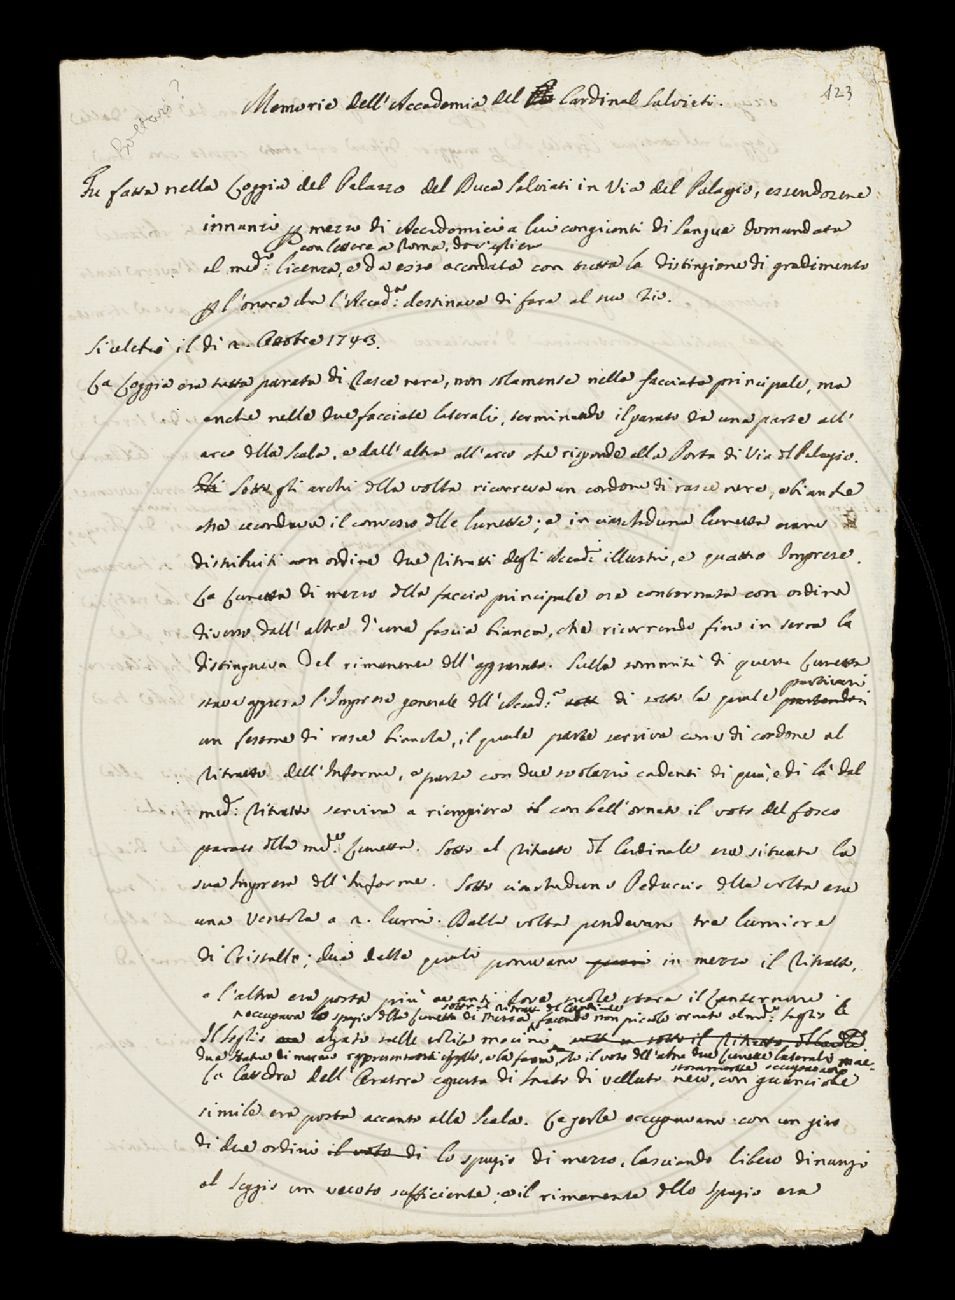 423
Memorie dell'Accademia del Cardinal Salviati.
Fu fatta nella Loggia del Palazzo del Duca Salviati in Via del Palagio, essendosene
innanzi p mezzo di Accademici a lui congionti di sangue domandata
con lettere a Roma, dov'egli era
al med.º licenza, e da esso accordata con tutta la distinzione di gradimento
p l'onore che l'Accad.ª destinava di fare al suo Zio.
Si celebrò il dì 2. Ottobre 1743.
La Loggia era tutta parata di rasce nere, non solamente nella facciata principale, ma
anche nelle due facciate laterali, terminando il parato da una parte all'
arco della scala, e dall'altra all'arco che risponde alla Porta di Via del Palagio.
Sotto gli archi della volta ricorreva un cordone di rasce nere, e bianche
che secondava il convesso delle lunette; e in ciascheduna lunetta erano
distribuiti con ordine due Ritratti degli Accad.ⁱ illustri, e quattro Imprese.
La Lunetta di mezzo della faccia principale era contornata con ordine
diverso dall'altre d'una fascia bianca, che ricorrendo fino in terra la
distingueva del rimanente dell'apparato. Sulla sommità di questa Lunetta
partivasi
stava appesa l'Impresa generale dell'Accad.ª di sotto la quale partendosi
un festone di rasce bianche, il quale parte serviva come di cordone al
Ritratto dell'Informe, e parte con due svolazzi cadenti di quà, e di là dal
med.º Ritratto serviva a riempiere con bell'ornato il voto del fosco
parato della med.ª Lunetta. Sotto al Ritratto del Cardinale era situata la
sua Impresa dell'Informe. Sotto ciascheduno Peduccio della volta era
una Ventola a 2. lumi. Dalla volta pendevano tre lumiere
di Cristallo; due delle quali ponevano in mezzo il Ritratto,
e l'altra era posta più avanti dove suole stare il Lanternone.
sotto il Ritratto del Cardinale
occupava lo spazio della Lunetta di mezzo, facendo non piccolo ornato al med.º Soglio le
Il Soglio alzato sulle solite macine sotto il Ritratto
due statue di marmo rappresentanti e la fama, il voto dell'altre due Lunette laterali
occupavano
La Catedra dell'Oratore coperta di strato di velluto nero, con guanciale
simile era posta accanto alla Scala. Le seste occupavano con un giro
di due ordini il voto di lo spazio di mezzo, lasciando libero dinanzi
al Seggio un vacuo sufficiente; e il rimanente dello spazio era